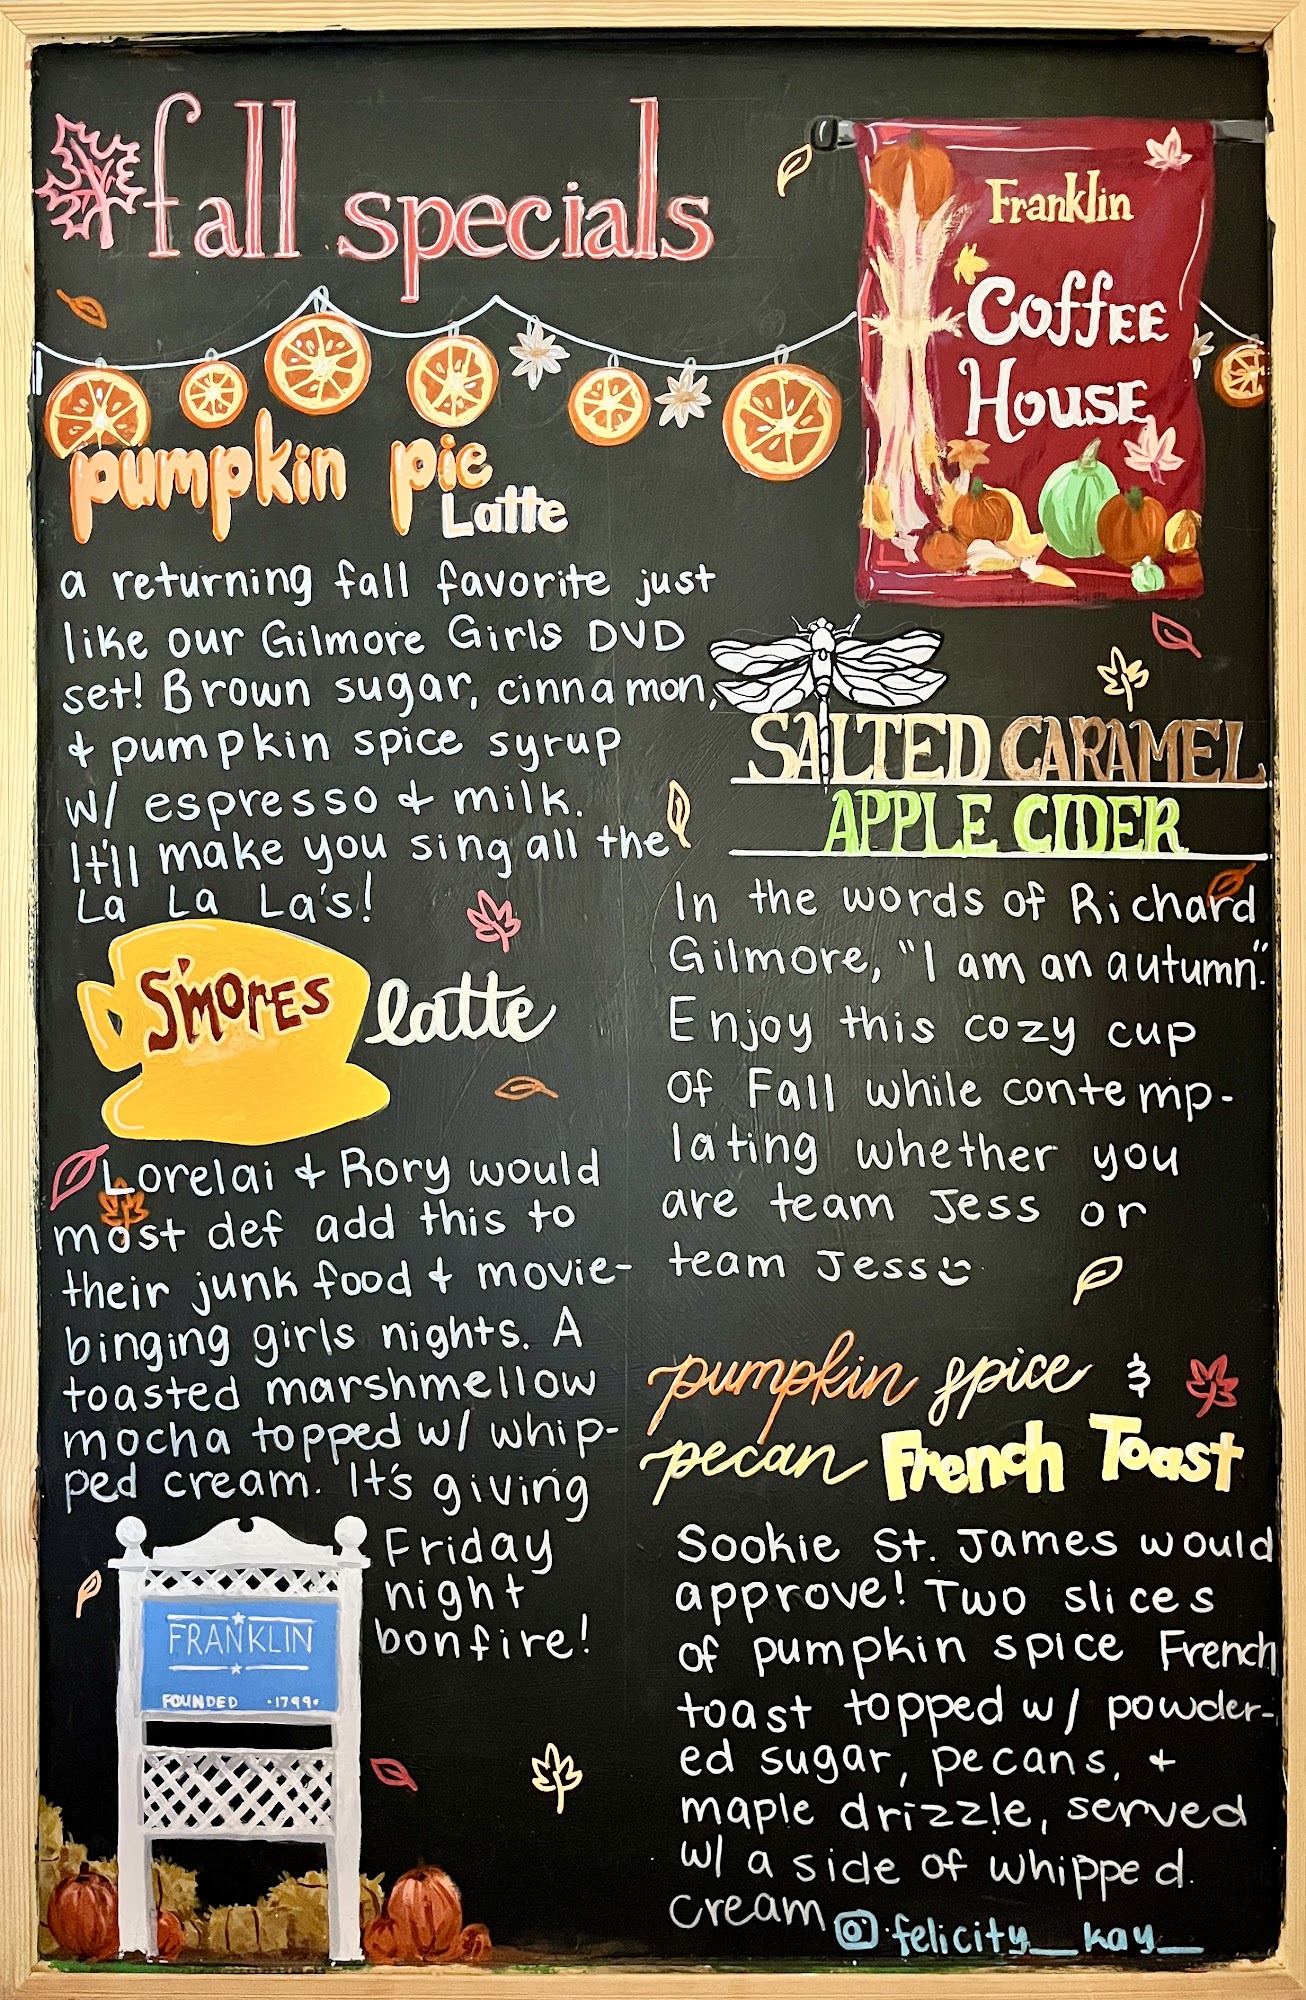 fall specials
Franklin
Coffee
House
pumpkin pie
Latte
a returning fall favorite just
like our Gilmore Girls DVD
set! Brown sugar, cinnamon,
& pumpkin spice syrup
w/ espresso & milk.
It'll make you sing all the
La La La's!
S'mores latte
Lorelai & Rory would
most def add this to
their junk food & movie-
binging girls nights. A
toasted marshmellow
mocha topped w/ whip-
ped cream. It's giving
Friday
night
bonfire!
FRANKLIN
FOUNDED ·1799·
SALTED CARAMEL
APPLE CIDER
In the words of Richard
Gilmore, "I am an autumn".
Enjoy this cozy cup
of Fall while contemp-
lating whether you
are team Jess or
team Jess
pumpkin spice &
pecan French Toast
Sookie St. James would
approve! Two slices
of pumpkin spice French
toast topped w/ powder-
ed sugar, pecans, &
maple drizzle, served
w/ a side of whipped
cream
felicity__kay__